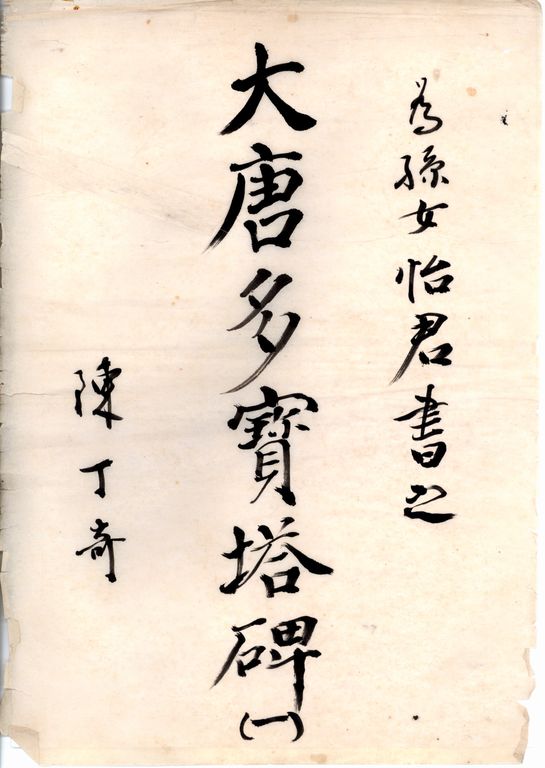 為孫女怡君書之
大唐多寶塔碑(一)
陳丁奇